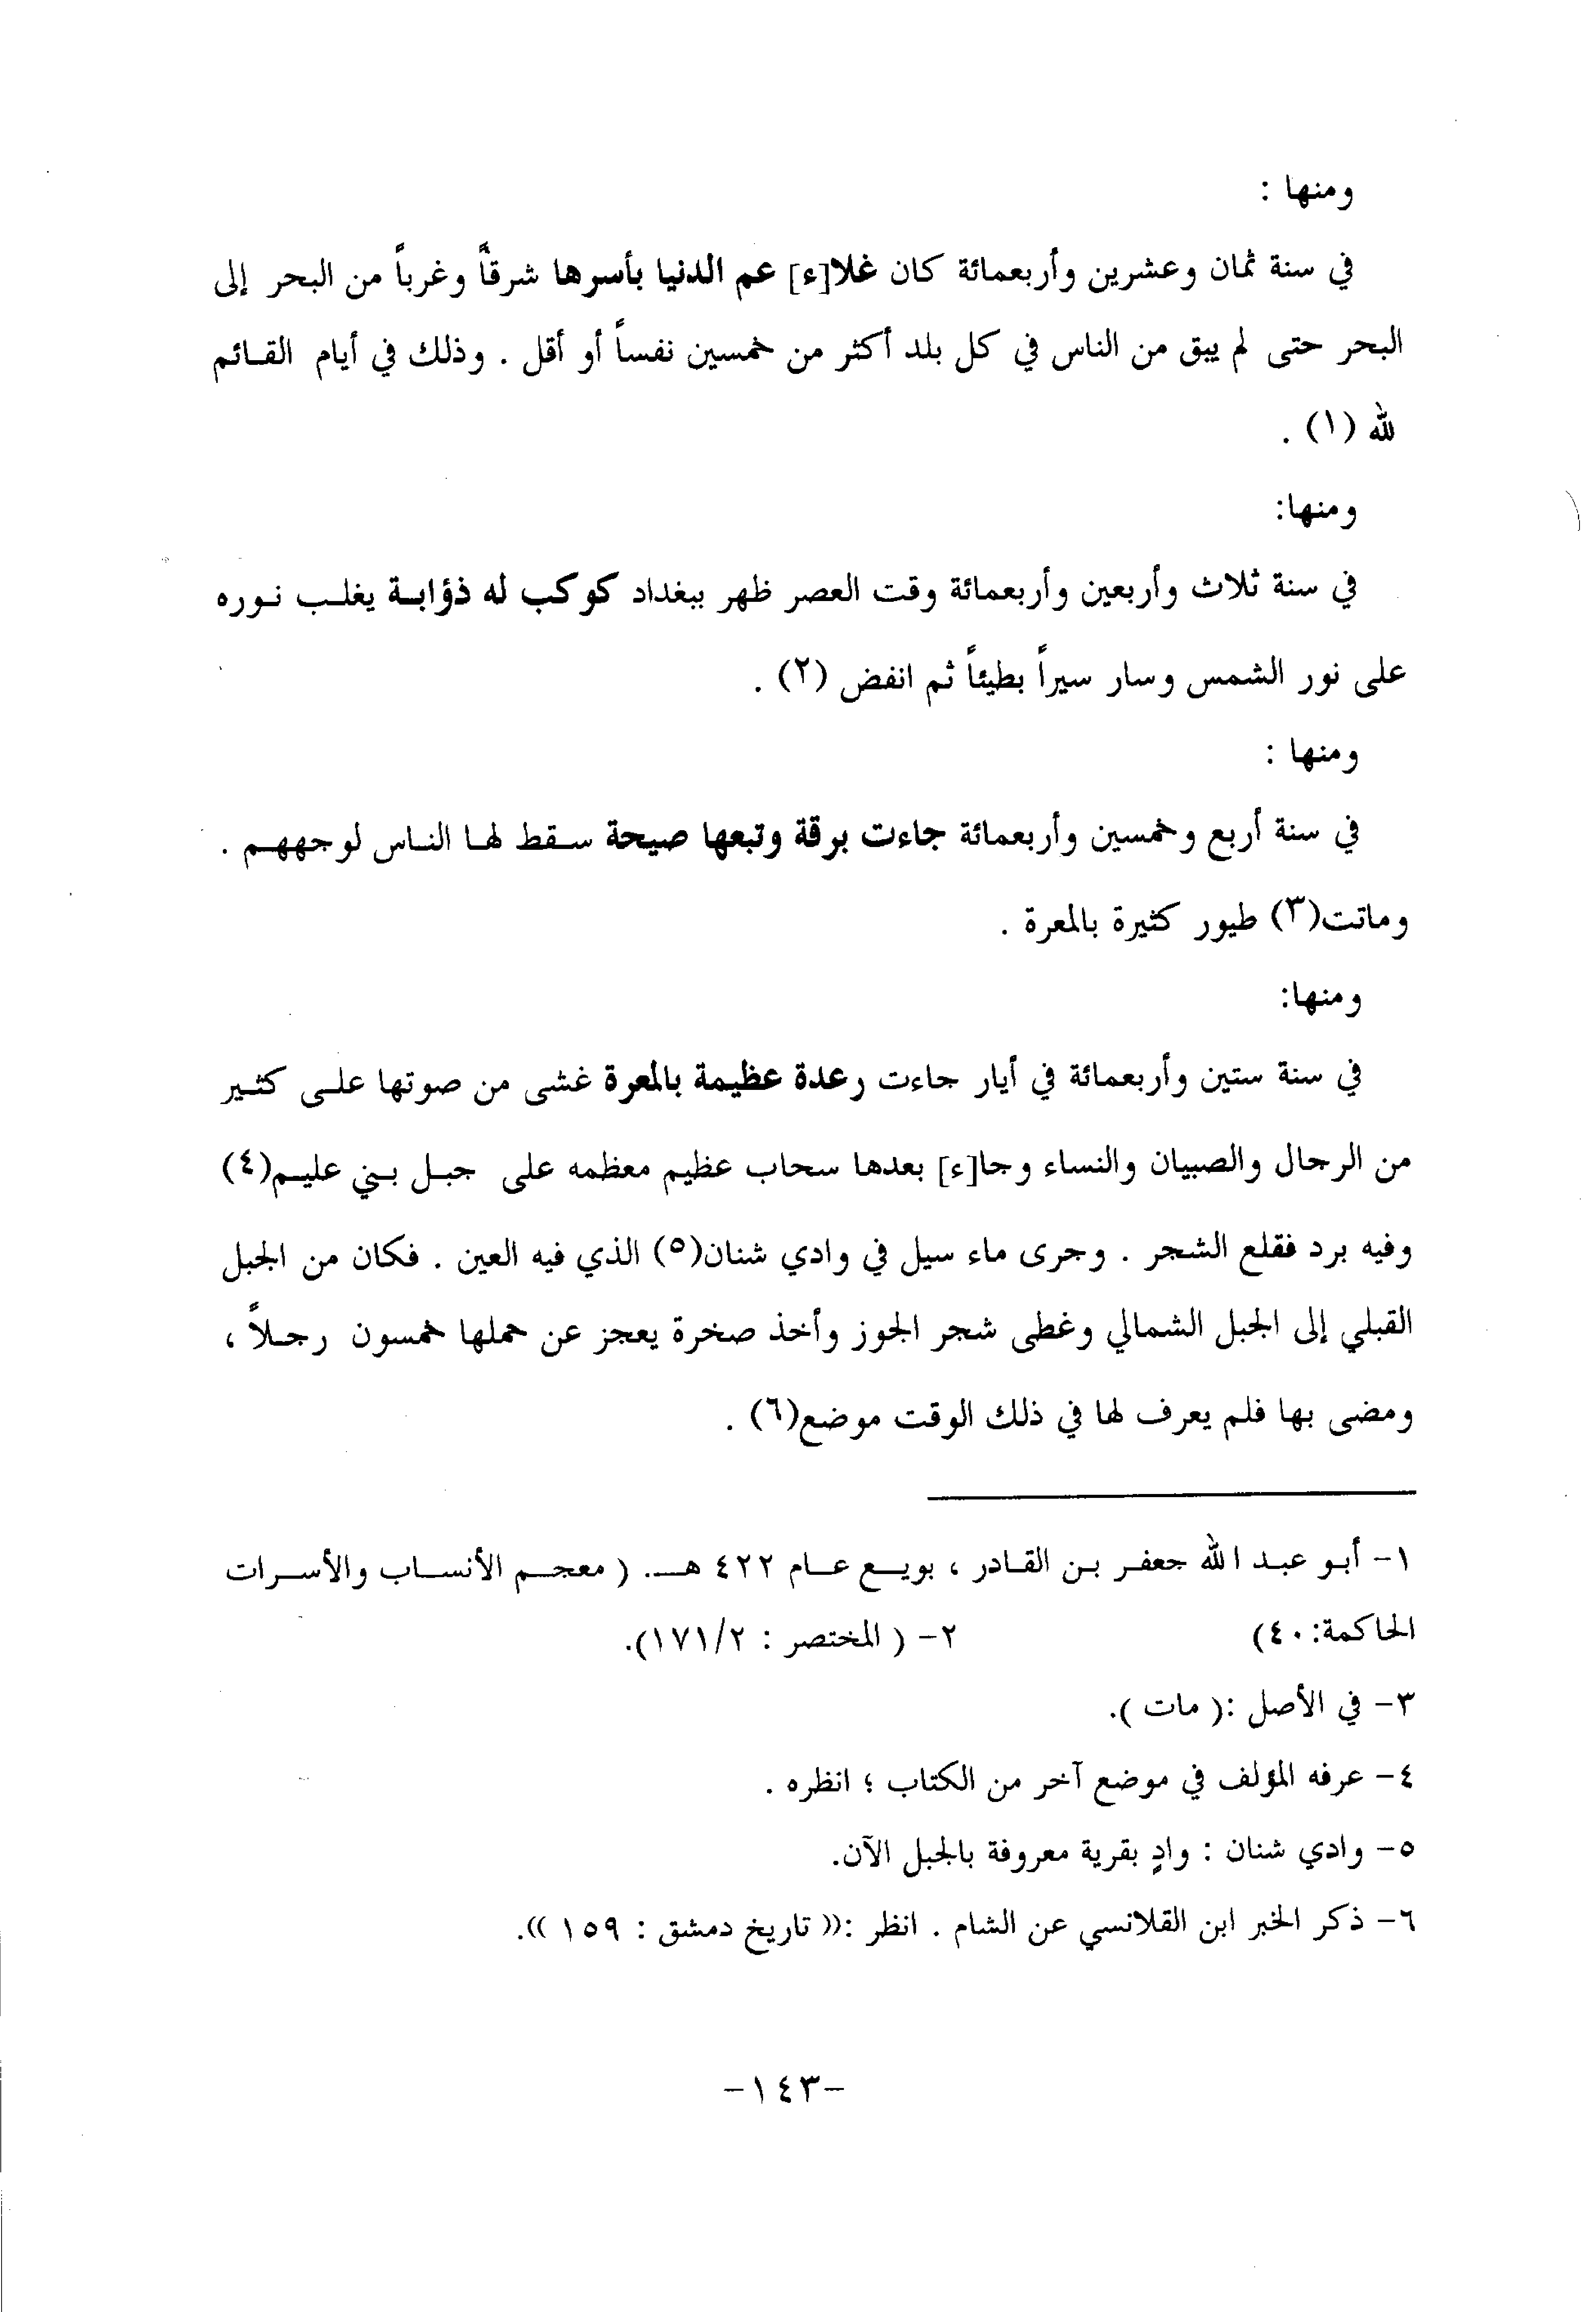 ومنها :
في سنة ثمان وعشرين وأربعمائة كان غلا[ء] عم الدنيا بأسرها شرقاً وغرباً من البحر إلى
البحر حتى لم يبق من الناس في كل بلد أكثر من خمسين نفساً أو أقل . وذلك في أيام القـائم
لله (١) .
ومنها:
في سنة ثلاث وأربعين وأربعمائة وقت العصر ظهر ببغداد كوكب له ذؤابـة يغلـب نـوره
على نور الشمس وسار سيراً بطيئاً ثم انفض (٢) .
ومنها :
في سنة أربع وخمسين وأربعمائة جاءت برقة وتبعها صيحة سـقط لهـا النـاس لوجههـم .
وماتت(٣) طيور كثيرة بالمعرة .
ومنها:
في سنة ستين وأربعمائة في أيار جاءت رعدة عظيمة بالمعرة غشى من صوتها علـى كثـير
من الرجال والصبيان والنساء وجا[ء] بعدها سحاب عظيم معظمه على جبـل بـني عليـم(٤)
وفيه برد فقلع الشجر . وجرى ماء سيل في وادي شنان(٥) الذي فيه العين . فكان من الجبل
القبلي إلى الجبل الشمالي وغطى شجر الجوز وأخذ صخرة يعجز عن حملها خمسون رجـلاً ،
ومضى بها فلم يعرف لها في ذلك الوقت موضع(٦) .
١- أبـو عبـد الله جعفـر بـن القـادر ، بويـع عـام ٤٢٢ هـ. ( معجـم الأنسـاب والأسـرات
الحاكمة:٤٠) ٢- ( المختصر : ١٧١/٢).
٣- في الأصل :( مات ).
٤- عرفه المؤلف في موضع آخر من الكتاب ؛ انظره .
٥- وادي شنان : وادٍ بقرية معروفة بالجبل الآن.
٦- ذكر الخبر ابن القلانسي عن الشام . انظر :(( تاريخ دمشق : ١٥٩ )).
-١٤٣-